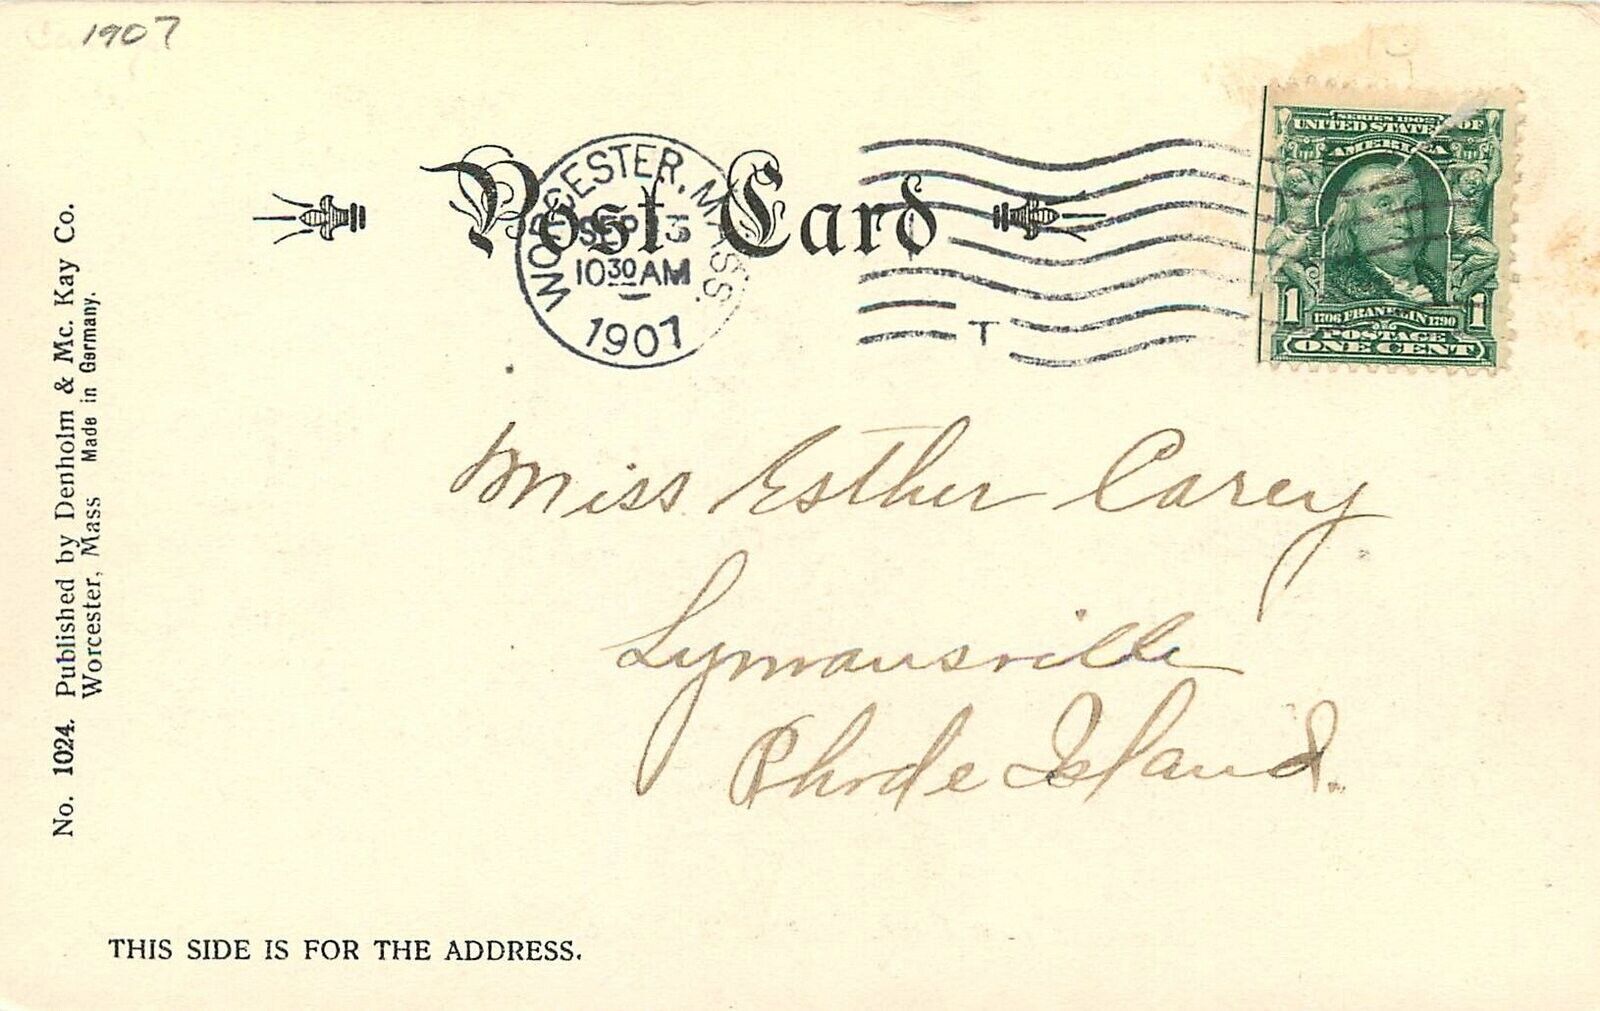 1907
Post Card
WORCESTER, MASS.
SEP 13
10 30 AM
1907
T
SERIES 1902
UNITED STATES OF
AMERICA
1 1
1706 FRANKLIN 1790
POSTAGE
ONE CENT
Miss Esther Carey
Lymansville
Rhode Island.
No. 1024. Published by Denholm & Mc. Kay Co.
Worcester, Mass Made in Germany.
THIS SIDE IS FOR THE ADDRESS.